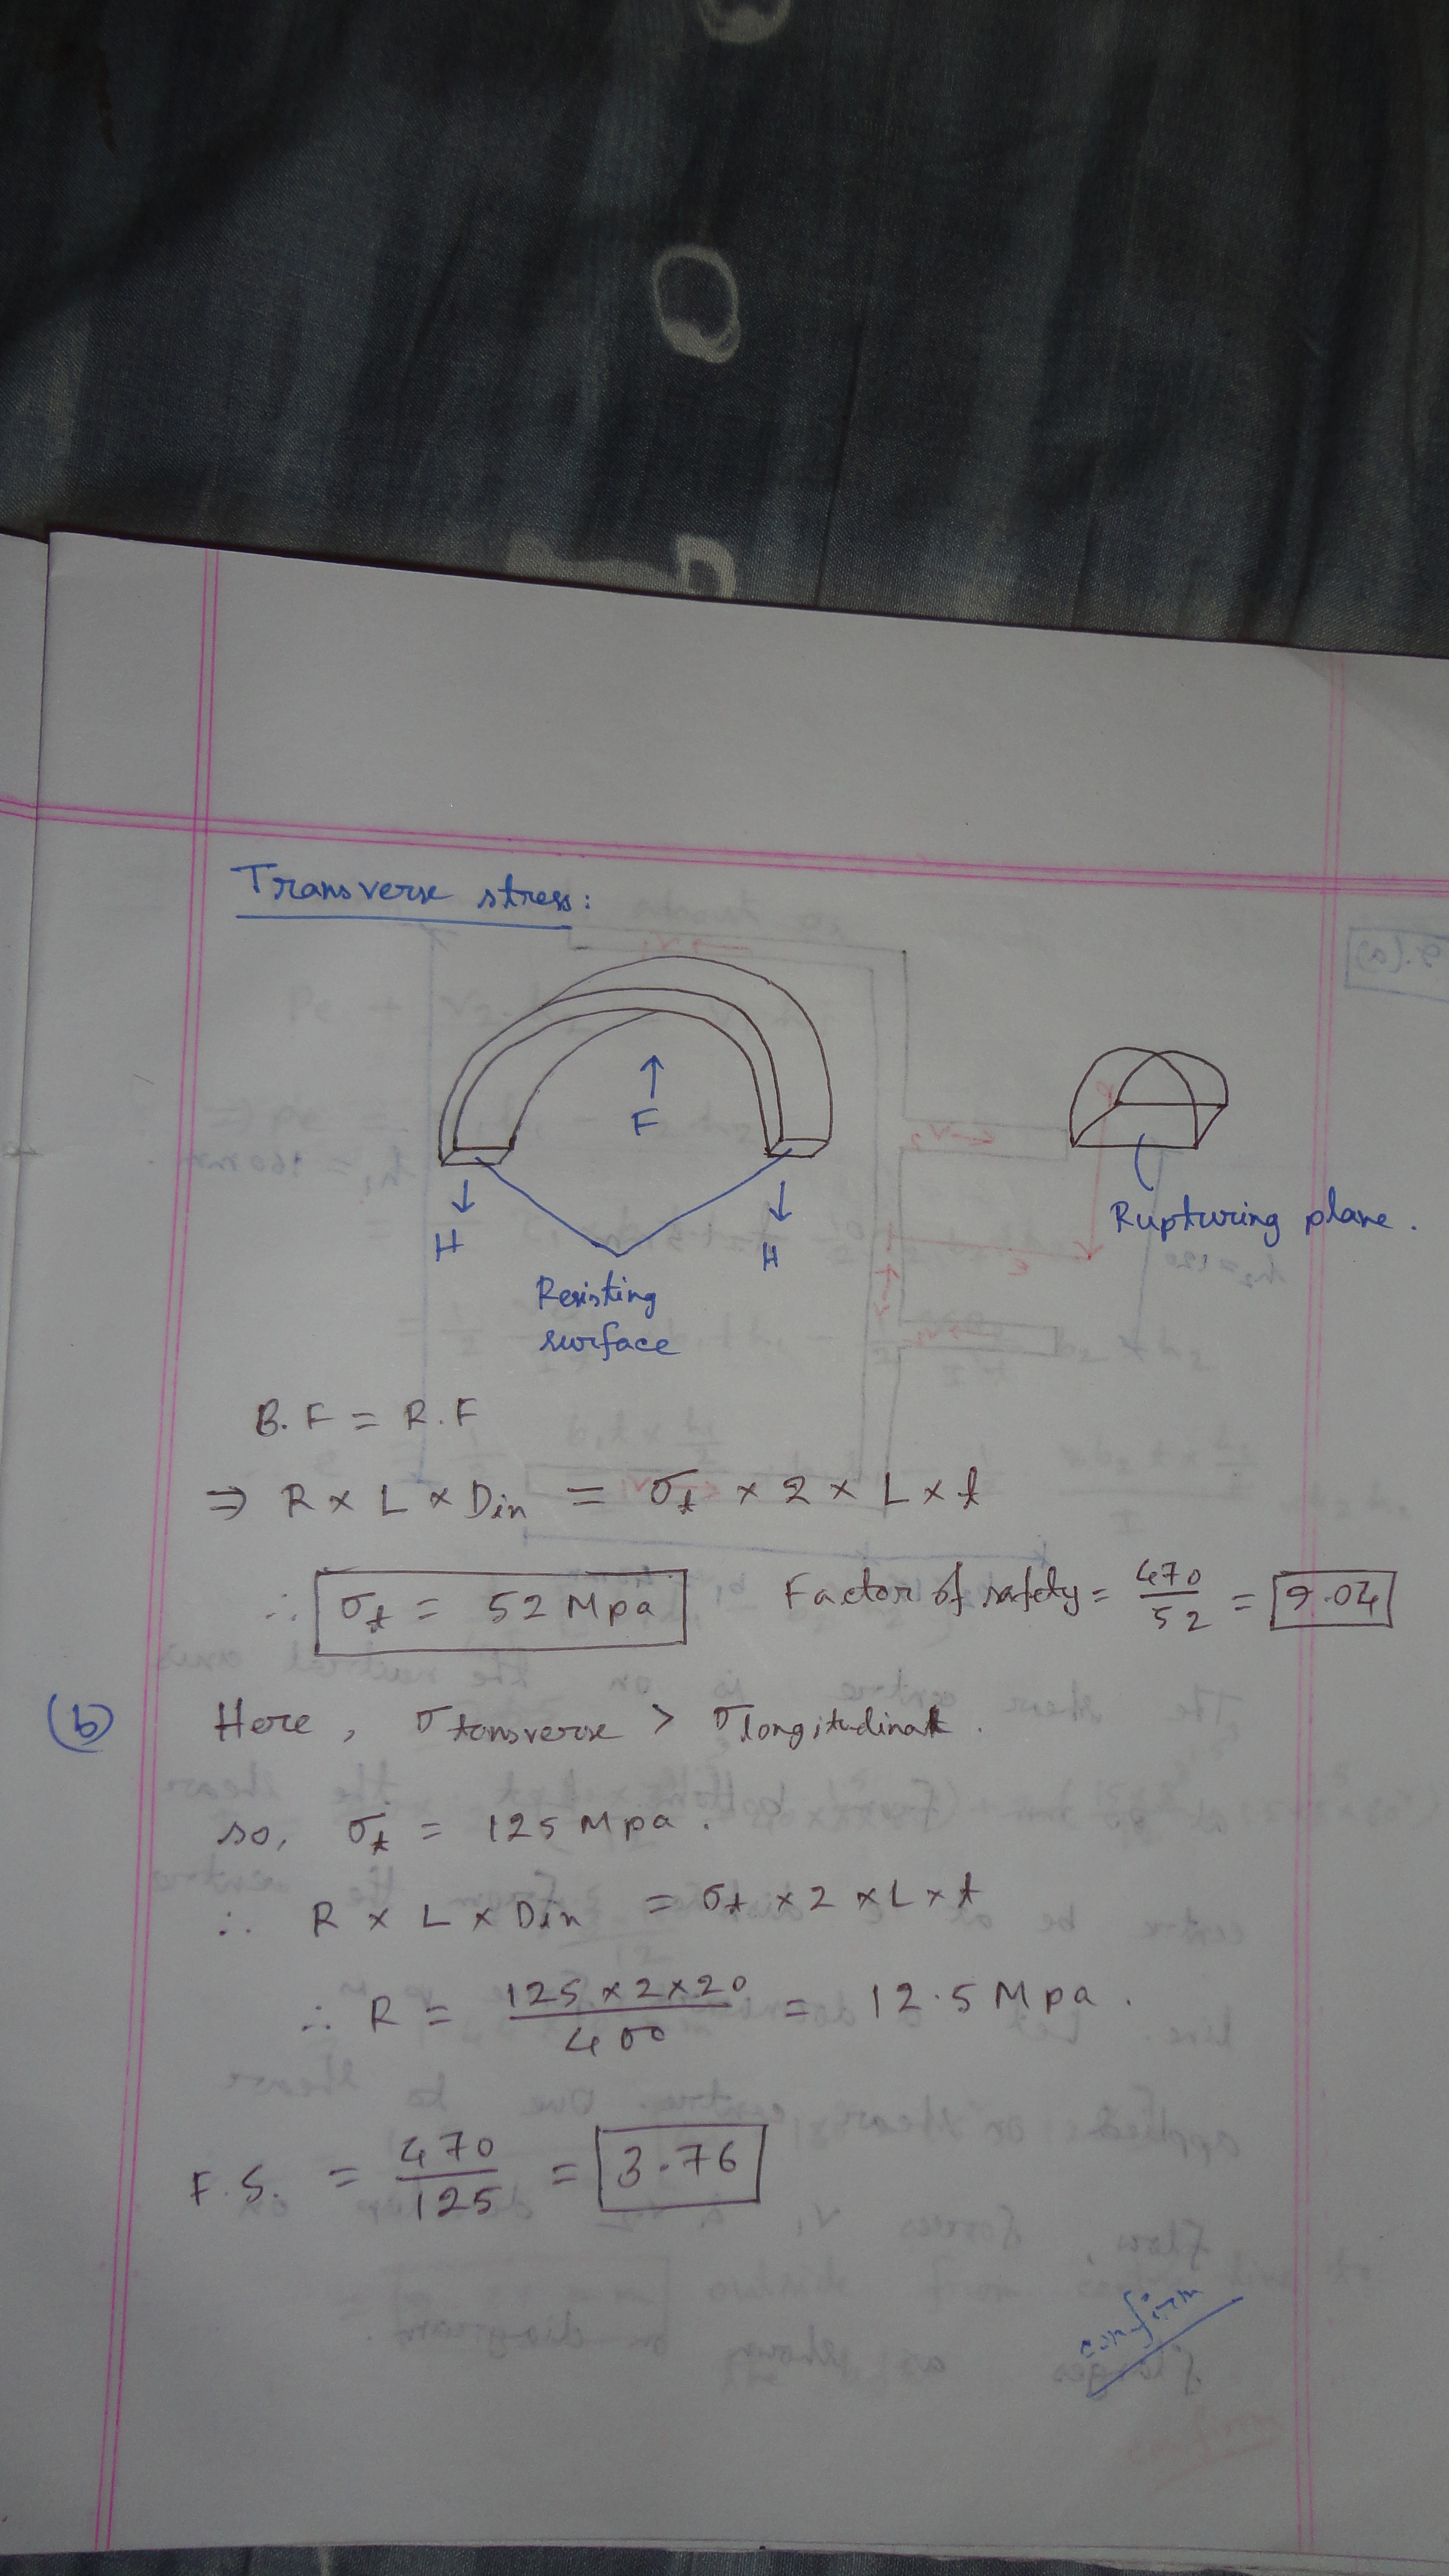 Transverse stress:
F
H
H
Resisting
surface
Rupturing plane.
B.F = R.F
⇒ R × L × Din = σt × 2 × L × t
∴ σt = 52 Mpa Factor of safety = 470/52 = 9.04
(b) Here, σtansverse > σlongitudinal.
so, σt = 125 Mpa.
∴ R × L × Din = σt × 2 × L × t
∴ R = 125 × 2 × 20 / 400 = 12.5 Mpa.
F.S. = 470/125 = 3.76
confirm